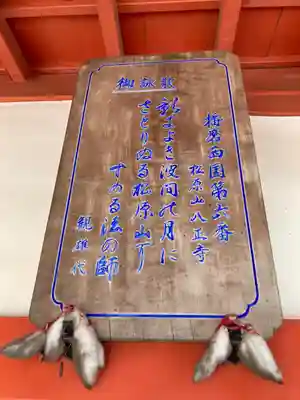 御詠歌
播磨西国第六番
松原山八正寺
影きよき波間の月に
さとりぬる松原山に
すめる法の師